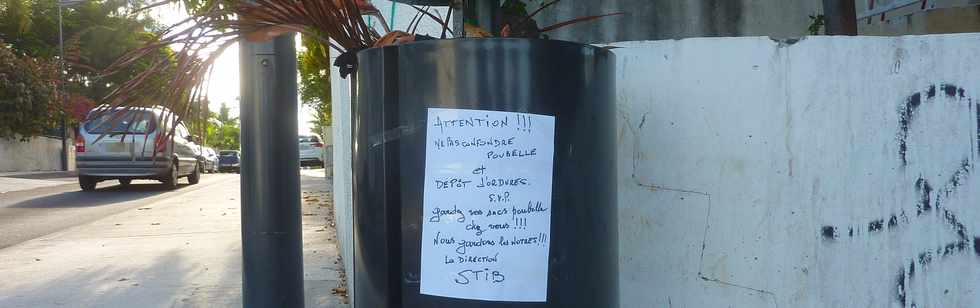 ATTENTION !!!
NE PAS CONFONDRE
POUBELLE
et
DEPÔT d'ORDURES.
S.V.P.
gardez ses sacs poubelle
chez vous !!!
Nous gardons les NOTRES !!!
LA DIRECTION
STIB